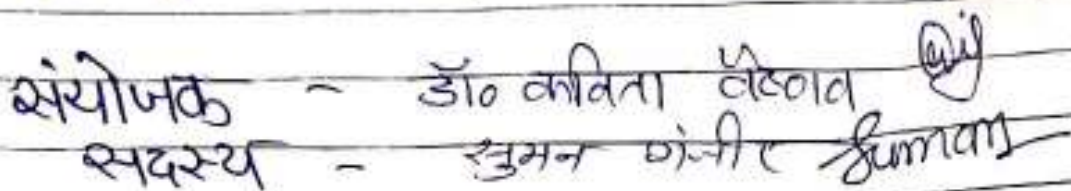 संयोजक - डॉ० कविता वैष्णव
सदस्य - सुमन गंभीर Suman